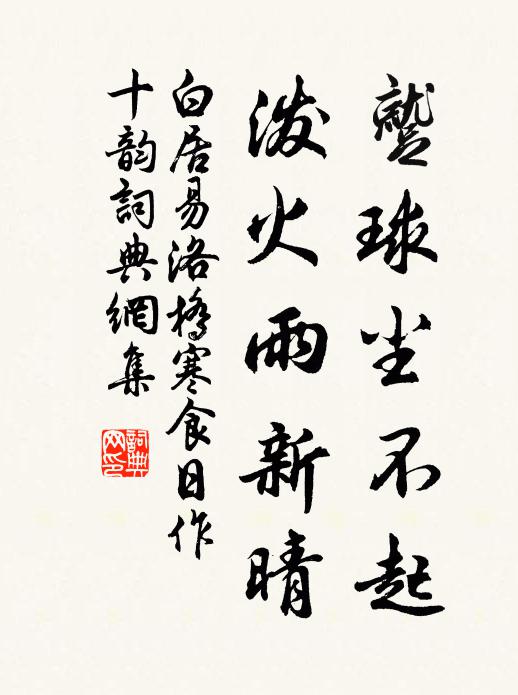 蹴球尘不起
泼火雨新晴
白居易洛橋寒食日作
十韵詞典網集
詞典网印